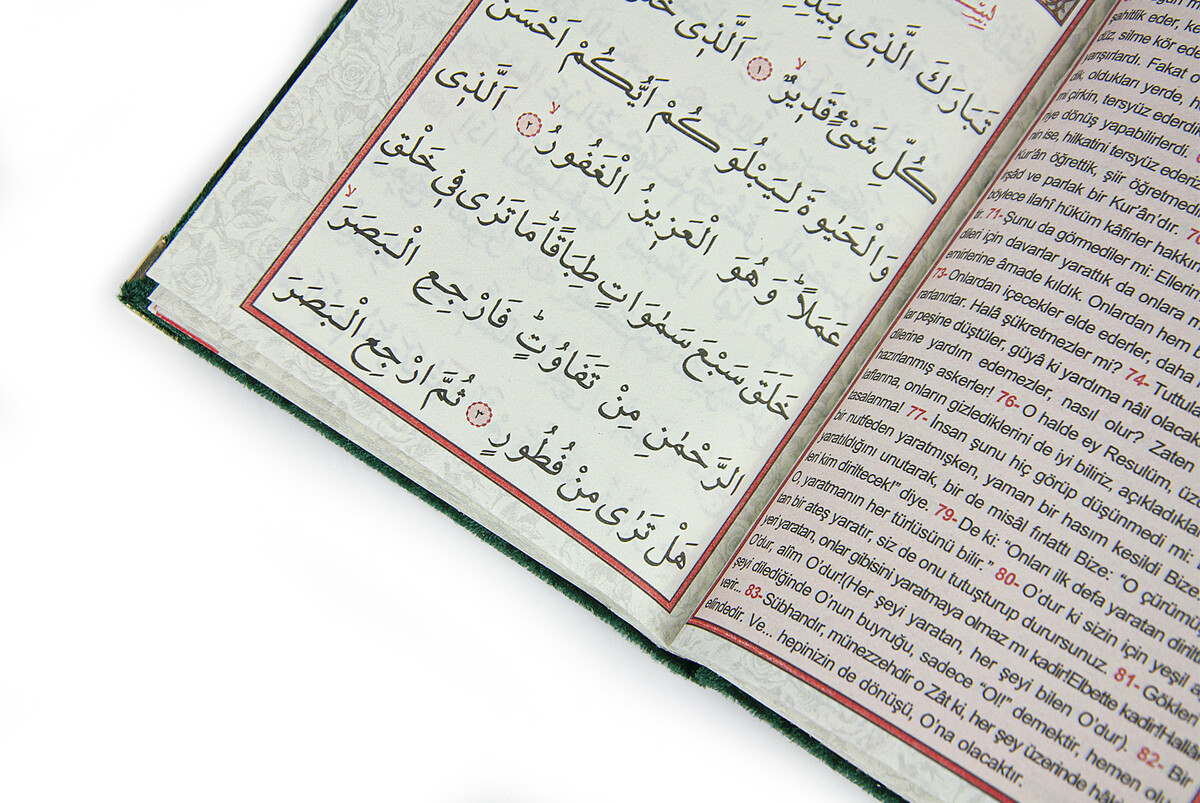 تَبَارَكَ الَّذِى بِيَدِهِ
كُلِّ شَىْءٍ قَدِيرٌۙ ﴿١﴾ اَلَّذِى
وَالْحَيٰوةَ لِيَبْلُوَكُمْ اَيُّكُمْ اَحْسَنُ
عَمَلاًۜ وَهُوَ الْعَزِيزُ الْغَفُورُۙ ﴿٢﴾ اَلَّذِى
خَلَقَ سَبْعَ سَمٰوَاتٍ طِبَاقًاۜ مَا تَرٰى فِى خَلْقِ
الرَّحْمٰنِ مِنْ تَفَاوُتٍۜ فَارْجِعِ الْبَصَرَۙ
هَلْ تَرٰى مِنْ فُطُورٍ ﴿٣﴾ ثُمَّ ارْجِعِ الْبَصَرَ
şahitlik eder,
düz, silme kör
yarışırlardı. Fakat
oldukları yerde,
çirkin, tersyüz ederdi
dönüş yapabilirlerdi.
ise, hilkatini tersyüz ederiz
Kur'ân öğrettik, şiir öğretmedi
ve parlak bir Kur'ân'dır.
böylece ilahî hüküm kâfirler
71-Şunu da görmediler mi: Ellerin
için davarlar yarattık da onlara
emirlerine âmade kıldık. Onlardan hem
73-Onlardan içecekler elde ederler, daha
Halâ şükretmezler mi? 74- Tuttul
peşine düştüler, güyâ ki yardıma nâil olacak
dilerine yardım edemezler, nasıl olur? Zaten
hazırlanmış askerler! 76- O halde ey Resulüm, üz
onların gizlediklerini de iyi biliriz, açıkladıkla
tasalanma! 77- İnsan şunu hiç görüp düşünmedi mi:
bir nutfeden yaratmışken, yaman bir hasım kesildi Bize
yaratıldığını unutarak, bir de misâl fırlattı Bize: “O çürümü
leri kim diriltecek!” diye. 79- De ki: “Onları ilk defa yaratan dirilt
O, yaratmanın her türlüsünü bilir.” 80- O'dur ki sizin için yeşil
tan bir ateş yaratır, siz de onu tutuşturup durursunuz. 81- Gökleri
yeri yaratan, onlar gibisini yaratmaya olmaz mı kadir!Elbette kadir!Hallâ
O'dur, alîm O'dur!(Her şeyi yaratan, her şeyi bilen O'dur). 82- Bir
şeyi dilediğinde O'nun buyruğu, sadece “Ol!” demektir, hemen olu
verir... 83-Sübhandır, münezzehdir o Zât ki, her şey üzerinde hâki
elindedir. Ve... hepinizin de dönüşü, O'na olacaktır.